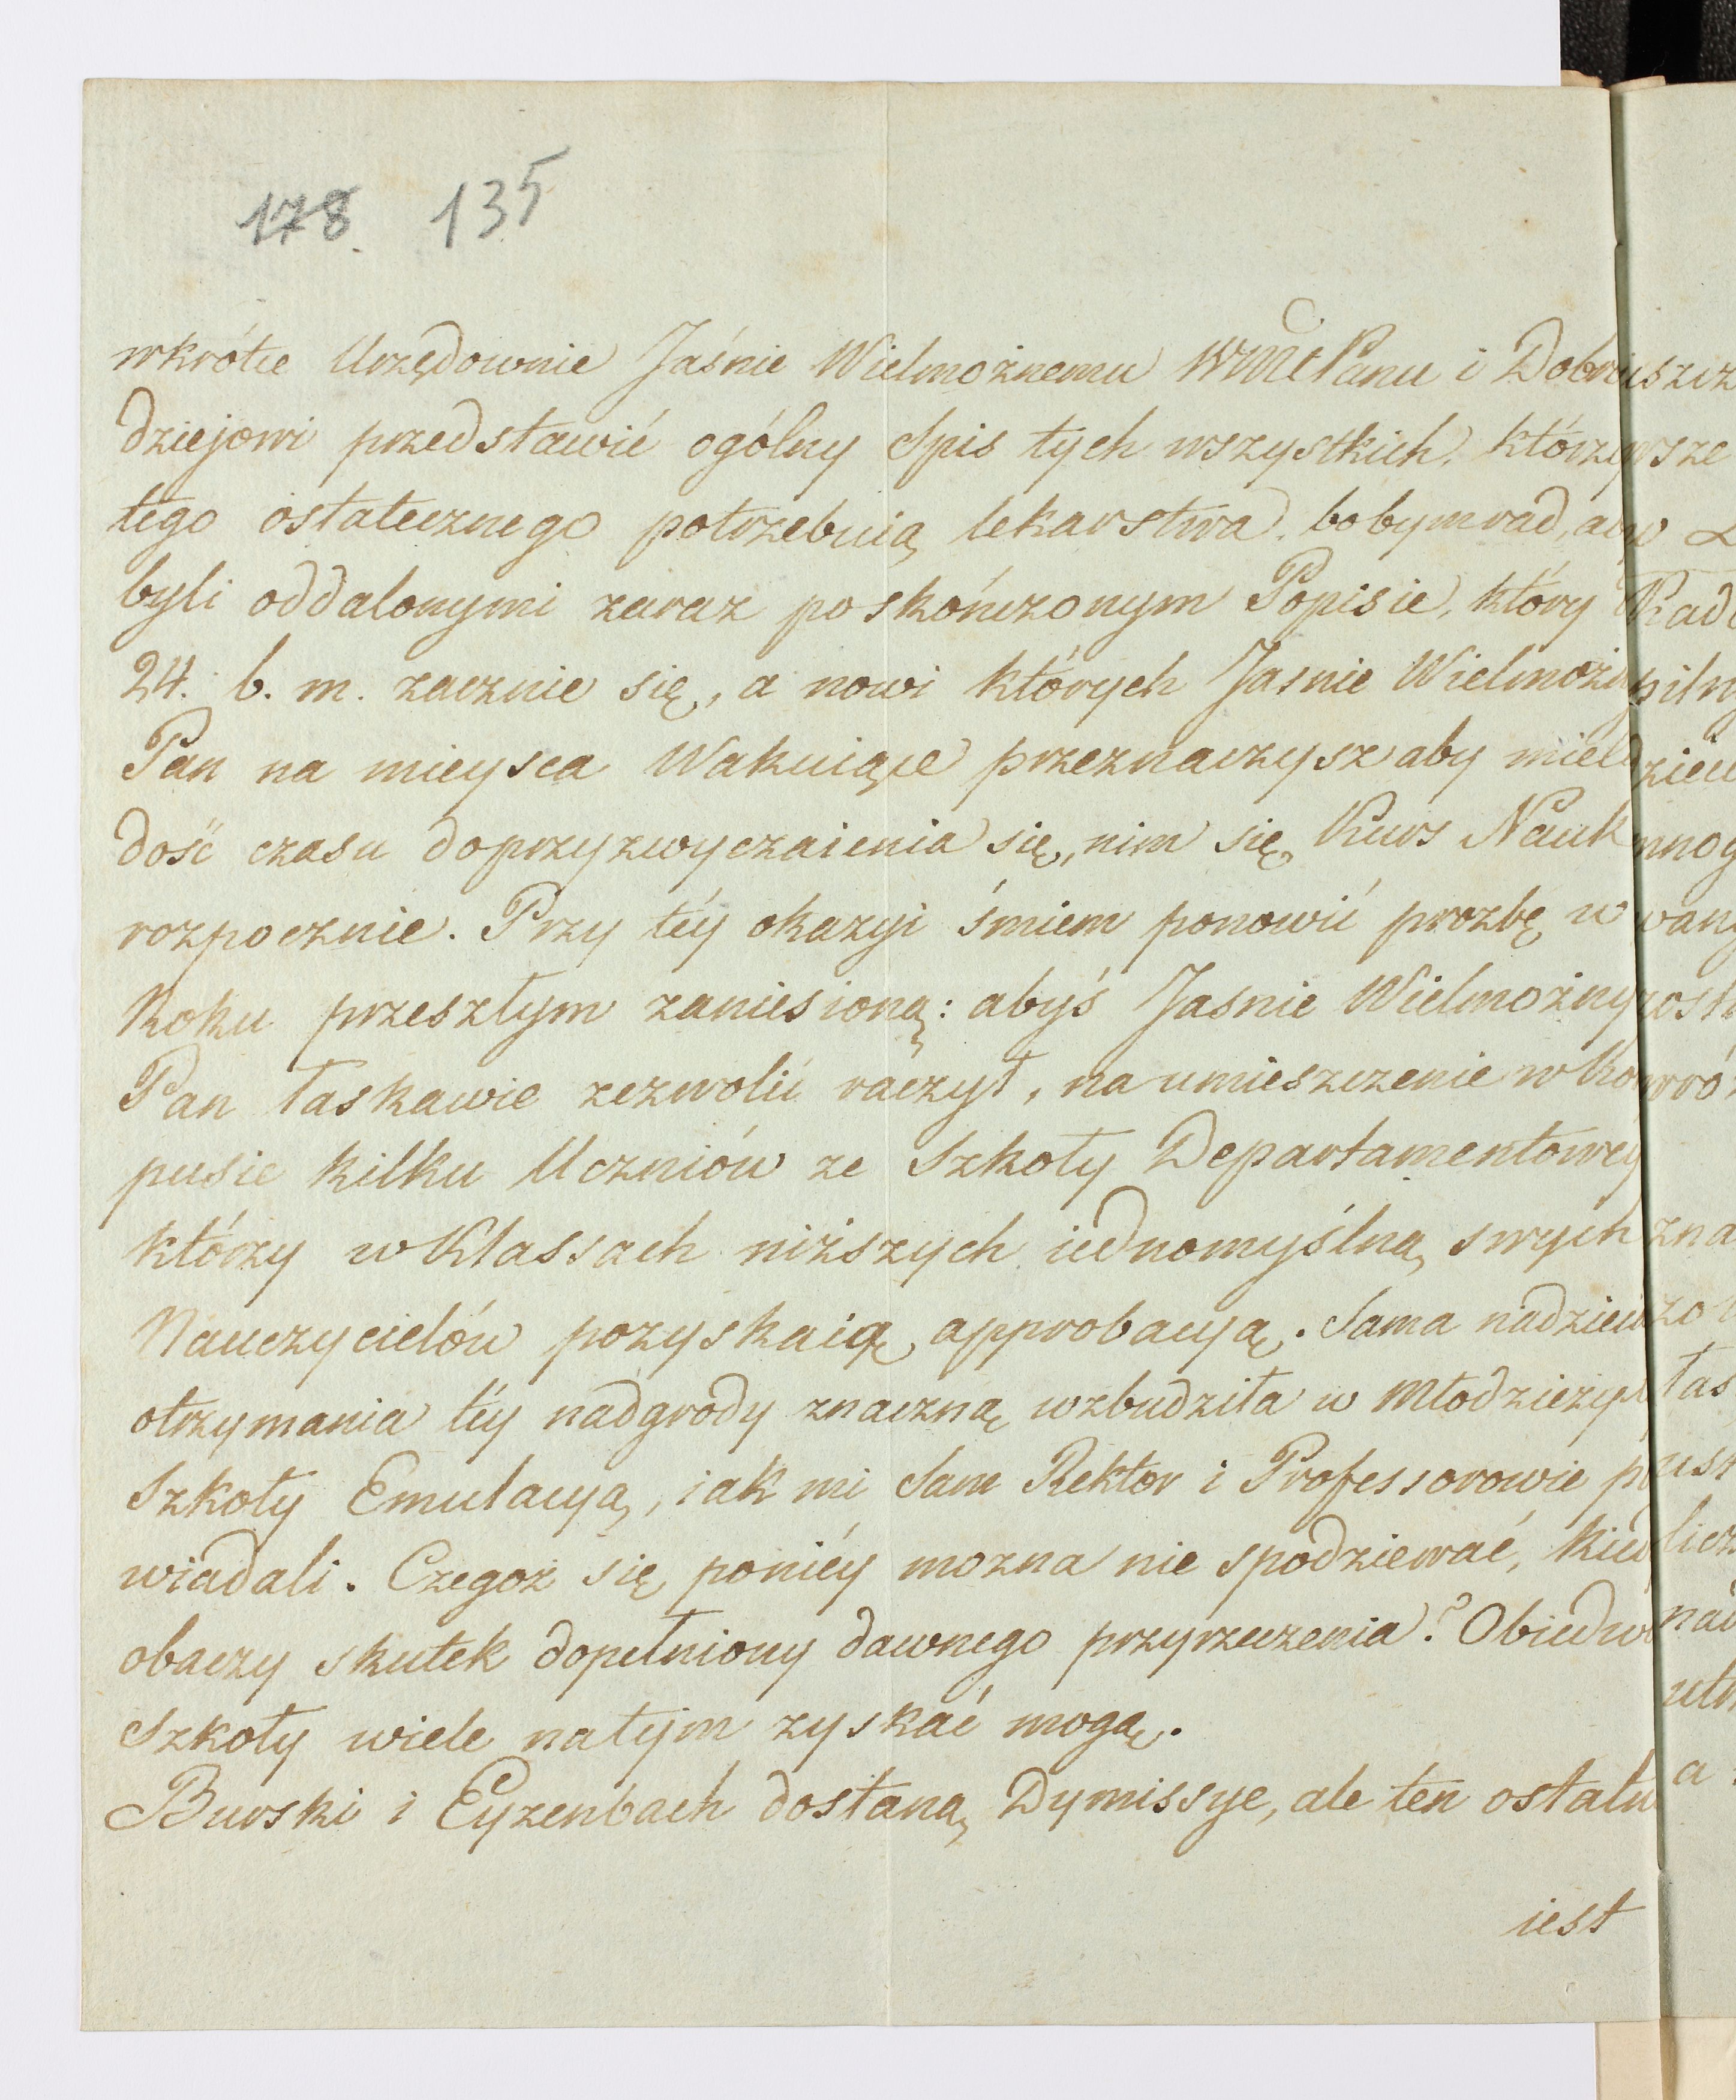 178. 135
wkrótce Urzędownie Jaśnie Wielmożnemu WMPanu i Dobro
dziejowi przedstawić ogólny Spis tych wszystkich, którzy
tego ostatecznego potrzebuią lekarstwa, bobym rad, aby
byli oddalonymi zaraz po skończonym Popisie, który
24. b. m. zacznie się, a nowi których Jasnie Wielmożny
Pan na mieysca Wakuiące przeznaczysz aby mieli
dość czasu do przyzwyczaienia się, nim się Kurs Nauk
rozpocznie. Przy téy okazyi śmiem ponowić prozbę w
Roku przeszłym zaniesioną: abyś Jasnie Wielmożny
Pan łaskawie zezwolić raczył, na umieszczenie w Kor
pusie kilku Uczniów ze Szkoły Departamentowéy
którzy w Klassach niższych iednomyślną swych
Nauczycielów pozyskaią approbacyą. Sama nadzieia
otrzymania téy nadgrody znaczną wzbudziła w Młodzieży
Szkoły Emulacyą, iak mi Sam Rektor i Professorowie po
wiadali. Czegoż się poniéy mozna nie spodziewać, kiedy
obaczy skutek dopełniony dawnego przyrzeczenia? Obiedwie
Szkoły wiele na tym zyskać mogą.
Burski i Eyzenbach dostaną Dymissye, ale ten ostatni
iest